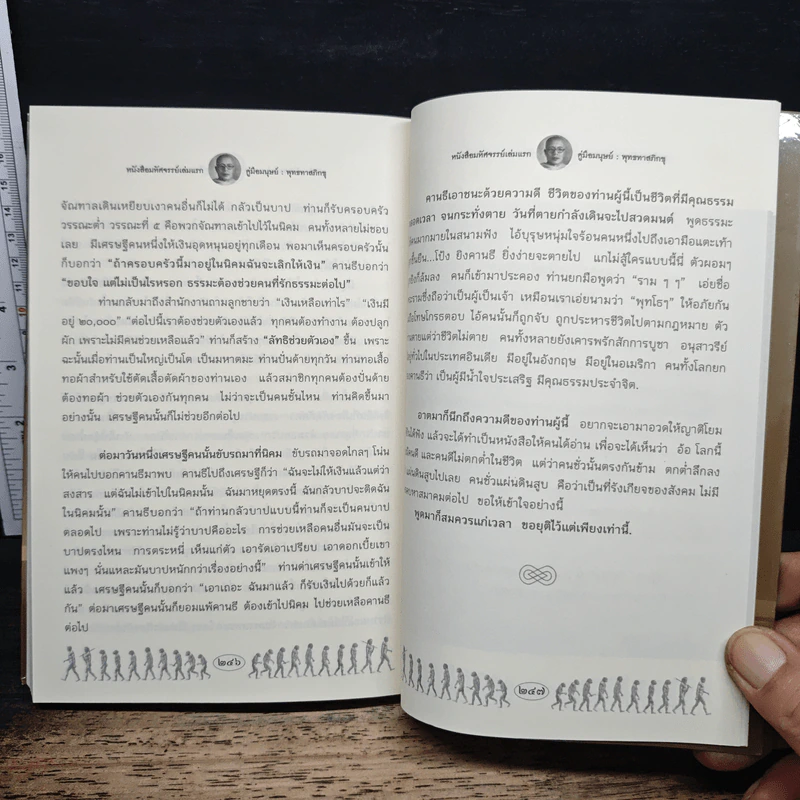 หนังสือมหัศจรรย์เล่มแรก คู่มือมนุษย์ : พุทธทาสภิกขุ
จัณฑาลเดินเหยียบเงาคนอื่นก็ไม่ได้ กลัวเป็นบาป ท่านก็รับครอบครัว
วรรณะต่ำ วรรณะที่ ๕ คือพวกจัณฑาลเข้าไปไว้ในนิคม คนทั้งหลายไม่ชอบ
เลย มีเศรษฐีคนหนึ่งให้เงินอุดหนุนอยู่ทุกเดือน พอมาเห็นครอบครัวนั้น
ก็บอกว่า “ถ้าครอบครัวนี้มาอยู่ในนิคมฉันจะเลิกให้เงิน” คานธีบอกว่า
“ขอบใจ แต่ไม่เป็นไรหรอก ธรรมะต้องช่วยคนที่รักธรรมะต่อไป”
ท่านกลับมาถึงสำนักงานถามลูกชายว่า “เงินเหลือเท่าไร” “เงินมี
อยู่ ๒๐,๐๐๐” “ต่อไปนี้เราต้องช่วยตัวเองแล้ว ทุกคนต้องทำงาน ต้องปลูก
ผัก เพราะไม่มีคนช่วยเหลือแล้ว” ท่านก็สร้าง “ลัทธิช่วยตัวเอง” ขึ้น เพราะ
ฉะนั้นเมื่อท่านเป็นใหญ่เป็นโต เป็นมหาตมะ ท่านปั่นด้ายทุกวัน ท่านทอเสื้อ
ทอผ้าสำหรับใช้ตัดเสื้อตัดผ้าของท่านเอง แล้วสมาชิกทุกคนต้องปั่นด้าย
ต้องทอผ้า ช่วยตัวเองกันทุกคน ไม่ว่าจะเป็นคนชั้นไหน ท่านคิดขึ้นมา
อย่างนั้น เศรษฐีคนนั้นก็ไม่ช่วยอีกต่อไป
ต่อมาวันหนึ่งเศรษฐีคนนั้นขับรถมาที่นิคม ขับรถมาจอดไกลๆ โน่น
ให้คนไปบอกคานธีมาพบ คานธีไปถึงเศรษฐีก็ว่า “ฉันจะไม่ให้เงินแล้วแต่ว่า
สงสาร แต่ฉันไม่เข้าไปในนิคมนั้น ฉันมาหยุดตรงนี้ ฉันกลัวบาปจะติดฉัน
ในนิคมนั้น” คานธีบอกว่า “ถ้าท่านกลัวบาปแบบนี้ท่านก็จะเป็นคนบาป
ตลอดไป เพราะท่านไม่รู้ว่าบาปคืออะไร การช่วยเหลือคนอื่นมันจะเป็น
บาปตรงไหน การตระหนี่ เห็นแก่ตัว เอารัดเอาเปรียบ เอาดอกเบี้ยเขา
แพงๆ นั่นแหละมันบาปหนักกว่าเรื่องอย่างนี้” ท่านด่าเศรษฐีคนนั้นเข้าให้
แล้ว เศรษฐีคนนั้นก็บอกว่า “เอาเถอะ ฉันมาแล้ว ก็รับเงินไปด้วยก็แล้ว
กัน” ต่อมาเศรษฐีคนนั้นก็ยอมแพ้คานธี ต้องเข้าไปนิคม ไปช่วยเหลือคานธี
ต่อไป
๒๔๖
หนังสือมหัศจรรย์เล่มแรก คู่มือมนุษย์ : พุทธทาสภิกขุ
คานธีเอาชนะด้วยความดี ชีวิตของท่านผู้นี้เป็นชีวิตที่มีคุณธรรม
เวลา จนกระทั่งตาย วันที่ตายกำลังเดินจะไปสวดมนต์ พูดธรรมะ
คนมากมายในสนามฟัง ไอ้บุรุษหนุ่มใจร้อนคนหนึ่งไปถึงเอามือแตะเท้า
ขึ้นยืน...โป้ง ยิงคานธี ยิ่งง่ายจะตายไป แกไม่สู้ใครแบบนี้นี่ ตัวผอมๆ
ยิงก็ล้มลง คนก็เข้ามาประคอง ท่านยกมือพูดว่า “ราม ๆ ๆ” เอ่ยชื่อ
รามซึ่งถือว่าเป็นผู้เป็นเจ้า เหมือนเราเอ่ยนามว่า “พุทโธๆ” ให้อภัยกัน
โทษโกรธตอบ ไอ้คนนั้นก็ถูกจับ ถูกประหารชีวิตไปตามกฎหมาย ตัว
ตายแต่ว่าชีวิตไม่ตาย คนทั้งหลายยังเคารพรักสักการบูชา อนุสาวรีย์
ทั่วไปในประเทศอินเดีย มีอยู่ในอังกฤษ มีอยู่ในอเมริกา คนทั้งโลกยก
คานธีว่า เป็นผู้มีน้ำใจประเสริฐ มีคุณธรรมประจำจิต.
อาตมาก็นึกถึงความดีของท่านผู้นี้ อยากจะเอามาอวดให้ญาติโยม
ได้ฟัง แล้วจะได้ทำเป็นหนังสือให้คนได้อ่าน เพื่อจะได้เห็นว่า อ้อ โลกนี้
มีคนดี และคนดีไม่ตกต่ำในชีวิต แต่ว่าคนชั่วนั้นตรงกันข้าม ตกต่ำลึกลง
แผ่นดินสูบไปเลย คนชั่วแผ่นดินสูบ คือว่าเป็นที่รังเกียจของสังคม ไม่มี
สมาคมต่อไป ขอให้เข้าใจอย่างนี้
พูดมาก็สมควรแก่เวลา ขอยุติไว้แต่เพียงเท่านี้.
๒๔๗